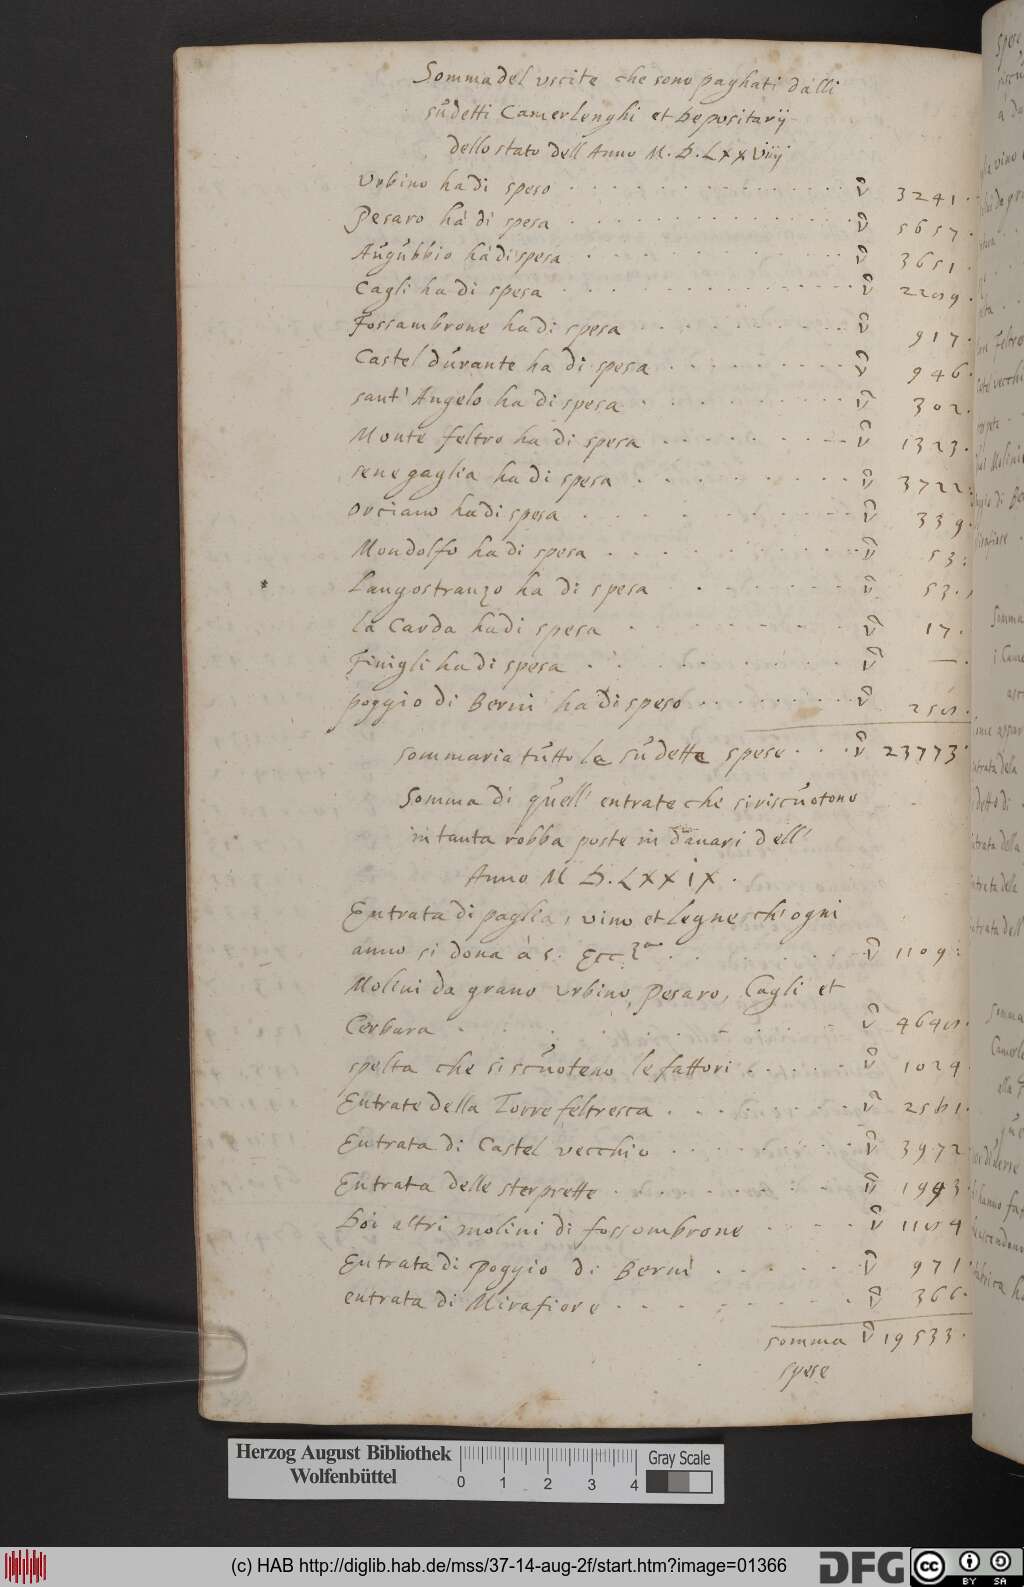 Somma del uscite che sono paghati dalli
sudetti Camerlenghi et Depositarij
dello stato dell Anno M. D. LXXViiij
Urbino ha di speso 3241
Pesaro há di spesa 5657
Augubbio há di spesa 3651
Cagli ha di spesa
Fossambrone ha di spesa 917
Castel durante ha di spesa 946
sant' Angelo ha di spesa 302
Monte feltro ha di spesa 1323
senegaglia ha di spesa 3722
orciano ha di spesa 339
Mondolfo ha di spesa 53
Langostranzo ha di spesa 53
la Carda ha di spesa 17
Finigli ha di spesa —
poggio di Berni ha di speso
sommaria tutto le sudette spese 23773
Somma di quell' entrate che si riscuotono
in tanta robba poste in danari dell'
Anno M D. LXXIX.
Entrata di paglia, vino et legne ch' ogni
anno si dona à s. Ecc.za 1109
Molini da grano Urbino, Pesaro, Cagli et
Cerbara
spelta che si scuoteno le fattori 1024
Entrate della Torre feltresca 2561
Entrata di Castel vecchio 3972
Entrata delle sterpette 1943
Doi altri molini di fossombrone
Entrata di poggio di Berni 971
entrata di Mirafiore 366
somma 19533
spese
Herzog August Bibliothek
Wolfenbüttel
0 1 2 3 4
Gray Scale
(c) HAB http://diglib.hab.de/mss/37-14-aug-2f/start.htm?image=01366
DFG
cc BY SA